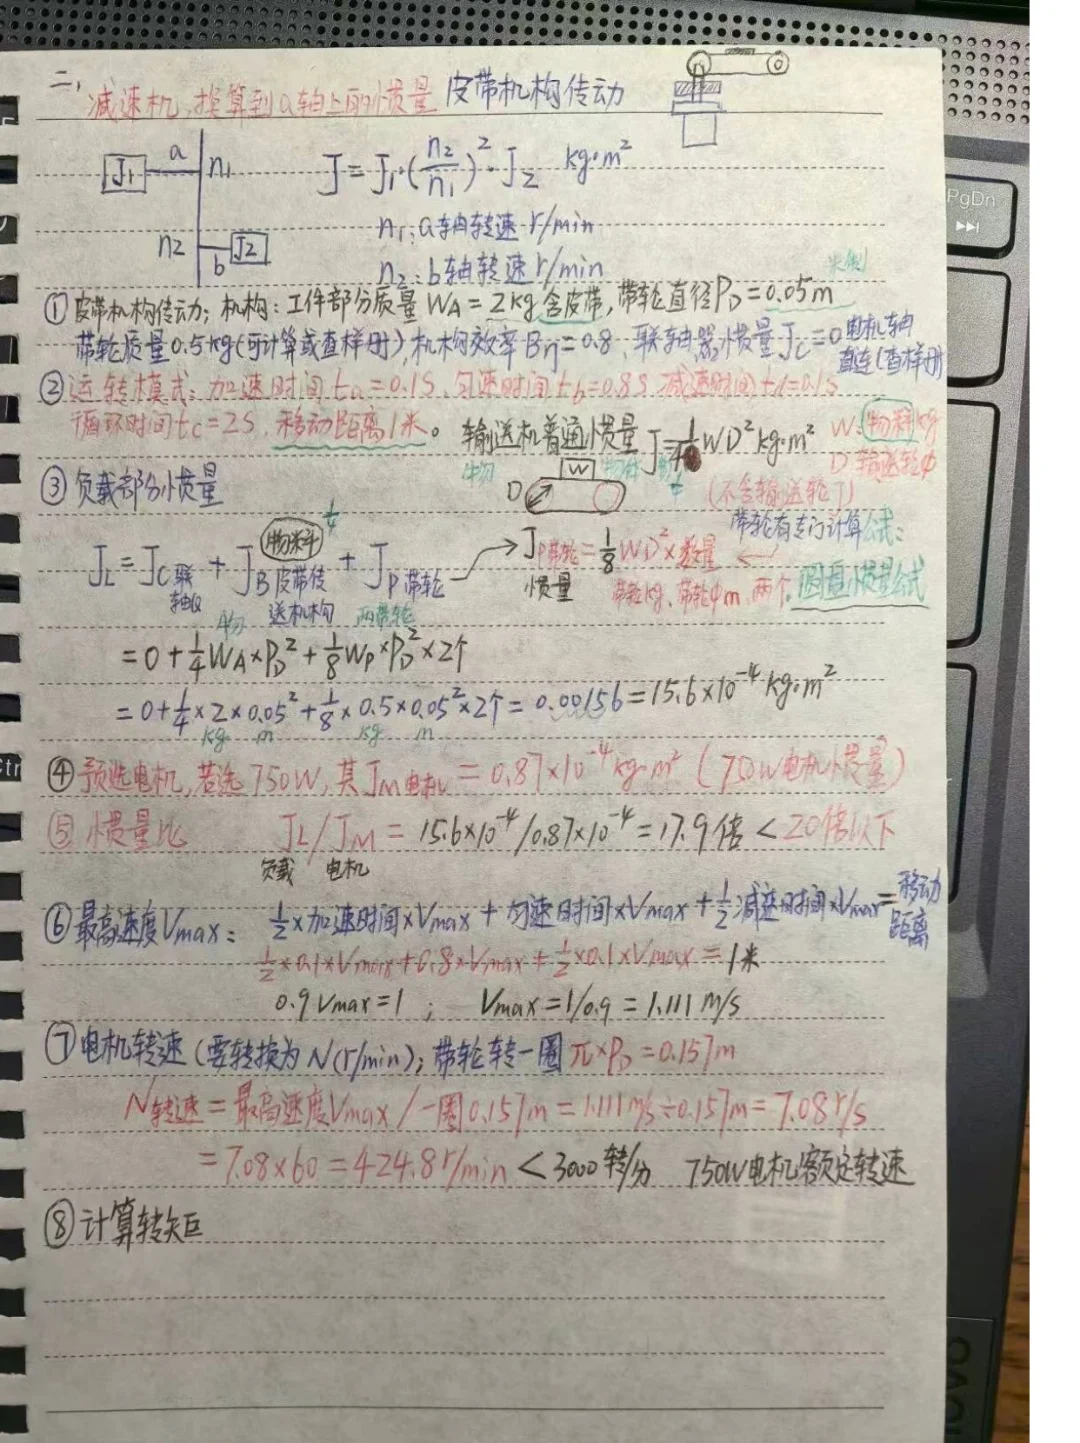 二, 减速机,换算到a轴上的惯量 皮带机构传动
J1 a n1 J=J1·(n2/n1)²·J2 kg·m²
n1:a轴转速 r/min
n2 b J2
n2:b轴转速 r/min
米制
①皮带机构传动;机构:工件部分质量 WA=2kg含皮带,带轮直径PD=0.05m
带轮质量0.5kg(可计算或查样册),机构效率Bη=0.8,联轴器惯量JC=0 电机轴直连(查样册)
②运转模式:加速时间ta=0.1S、匀速时间tb=0.8S 减速时间td=0.1s
循环时间tc=2S,移动距离1米。 输送机普通惯量 J=1/4WD²kg·m² W:物料kg
D 输送轮φ
③负载部分惯量 D W (不含输送轮J)
带轮有专门计算公式:
物料 1/4
JL=JC联轴器+JB皮带传送机构+JP带轮 → JP带轮惯量=1/8WD²×数量
带轮kg、带轮φm、两个。圆盘惯量公式
两带轮
=0+1/4WA×PD²+1/8WP×PD²×2个
=0+1/4×2×0.05²+1/8×0.5×0.05²×2个=0.00156=15.6×10⁻⁴kg·m²
kg m kg m
④预选电机,若选750W,其JM电机=0.87×10⁻⁴kg·m²(750W电机惯量)
⑤惯量比 JL/JM=15.6×10⁻⁴/0.87×10⁻⁴=17.9倍<20倍以下
负载 电机
⑥最高速度Vmax: 1/2×加速时间×Vmax+匀速时间×Vmax+1/2减速时间×Vmax=移动距离
1/2×0.1×Vmax+0.8×Vmax+1/2×0.1×Vmax=1米
0.9Vmax=1; Vmax=1/0.9=1.111m/s
⑦电机转速(要转换为N(r/min);带轮转一圈π×PD=0.157m
N转速=最高速度Vmax/一圈0.157m=1.111m/s÷0.157m=7.08r/s
=7.08×60=424.8r/min<3000转/分 750W电机额定转速
⑧计算转矩
PgDn